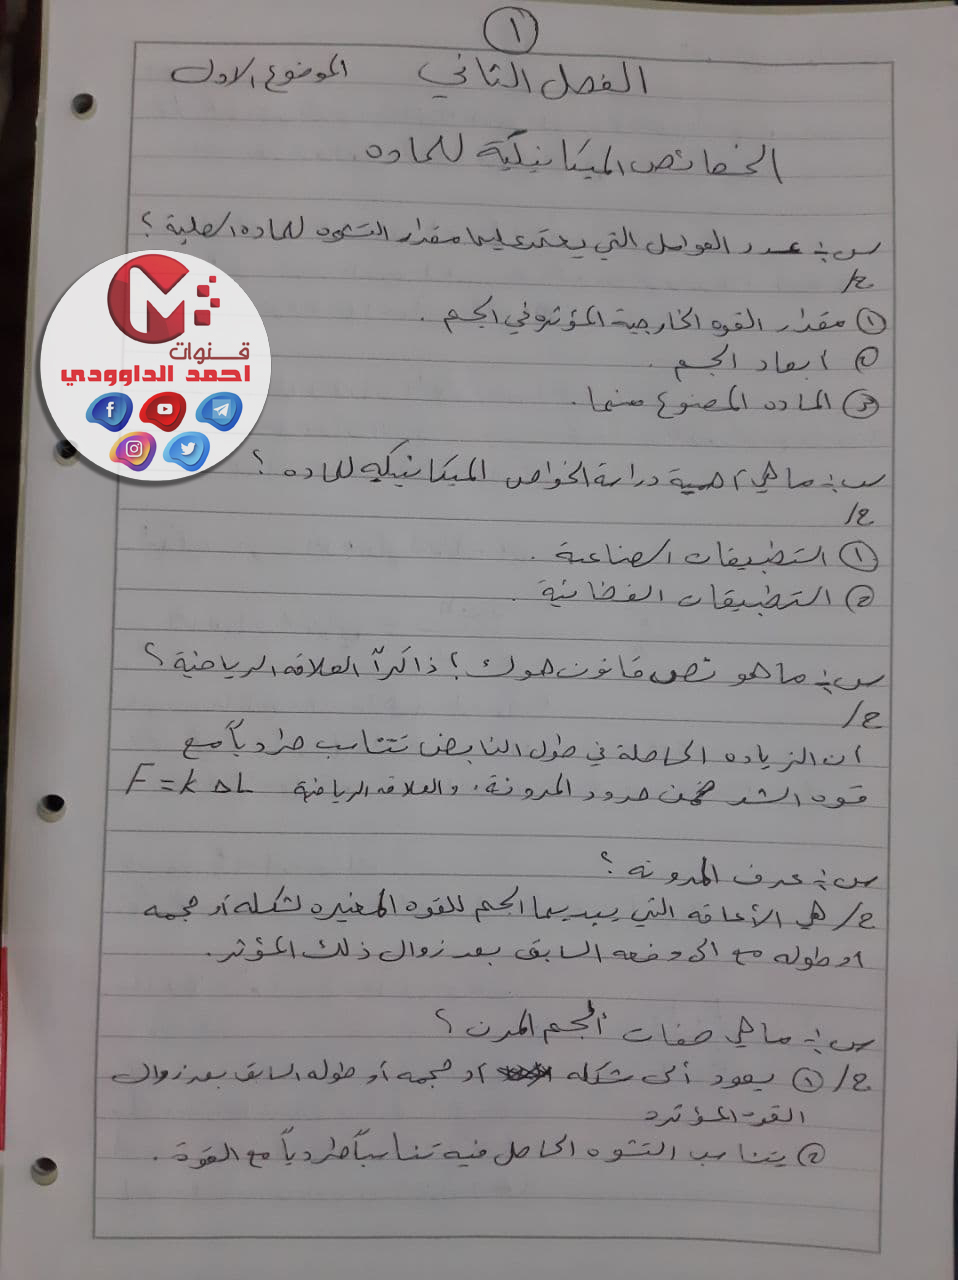 ١
الفصل الثاني الموضوع الاول
الخصائص الميكانيكية للماده
س:- عدد العوامل التي يعتمد عليها مقدار التشوه للماده الصلبة ؟
ج/
① مقدار القوه الخارجية المؤثره في الجسم .
② ابعاد الجسم .
③ الماده المصنوع منها .
قنوات
احمد الداوودي
س:- ما هي اهمية دراسة الخواص الميكانيكيه للماده ؟
ج/
① التطبيقات الصناعية .
② التطبيقات الفضائية .
س:- ما هو نص قانون هوك ؟ ذاكراً العلاقه الرياضية ؟
ج/
ان الزياده الحاصلة في طول النابض تتناسب طردياً مع
قوه الشد ضمن حدود المرونة . والعلاقه الرياضية F = k ΔL
س:- عرف المرونه ؟
ج/ هي الأعاقه التي يبديها الجسم للقوه المغيره لشكله او حجمه
او طوله مع الى وضعه السابق بعد زوال ذلك المؤثر .
س:- ما هي صفات الجسم المرن ؟
ج/ ① يعود ألى شكله او حجمه او طوله السابق بعد زوال
القوه المؤثره
② يتناسب التشوه الحاصل فيه تناسباً طردياً مع القوة .